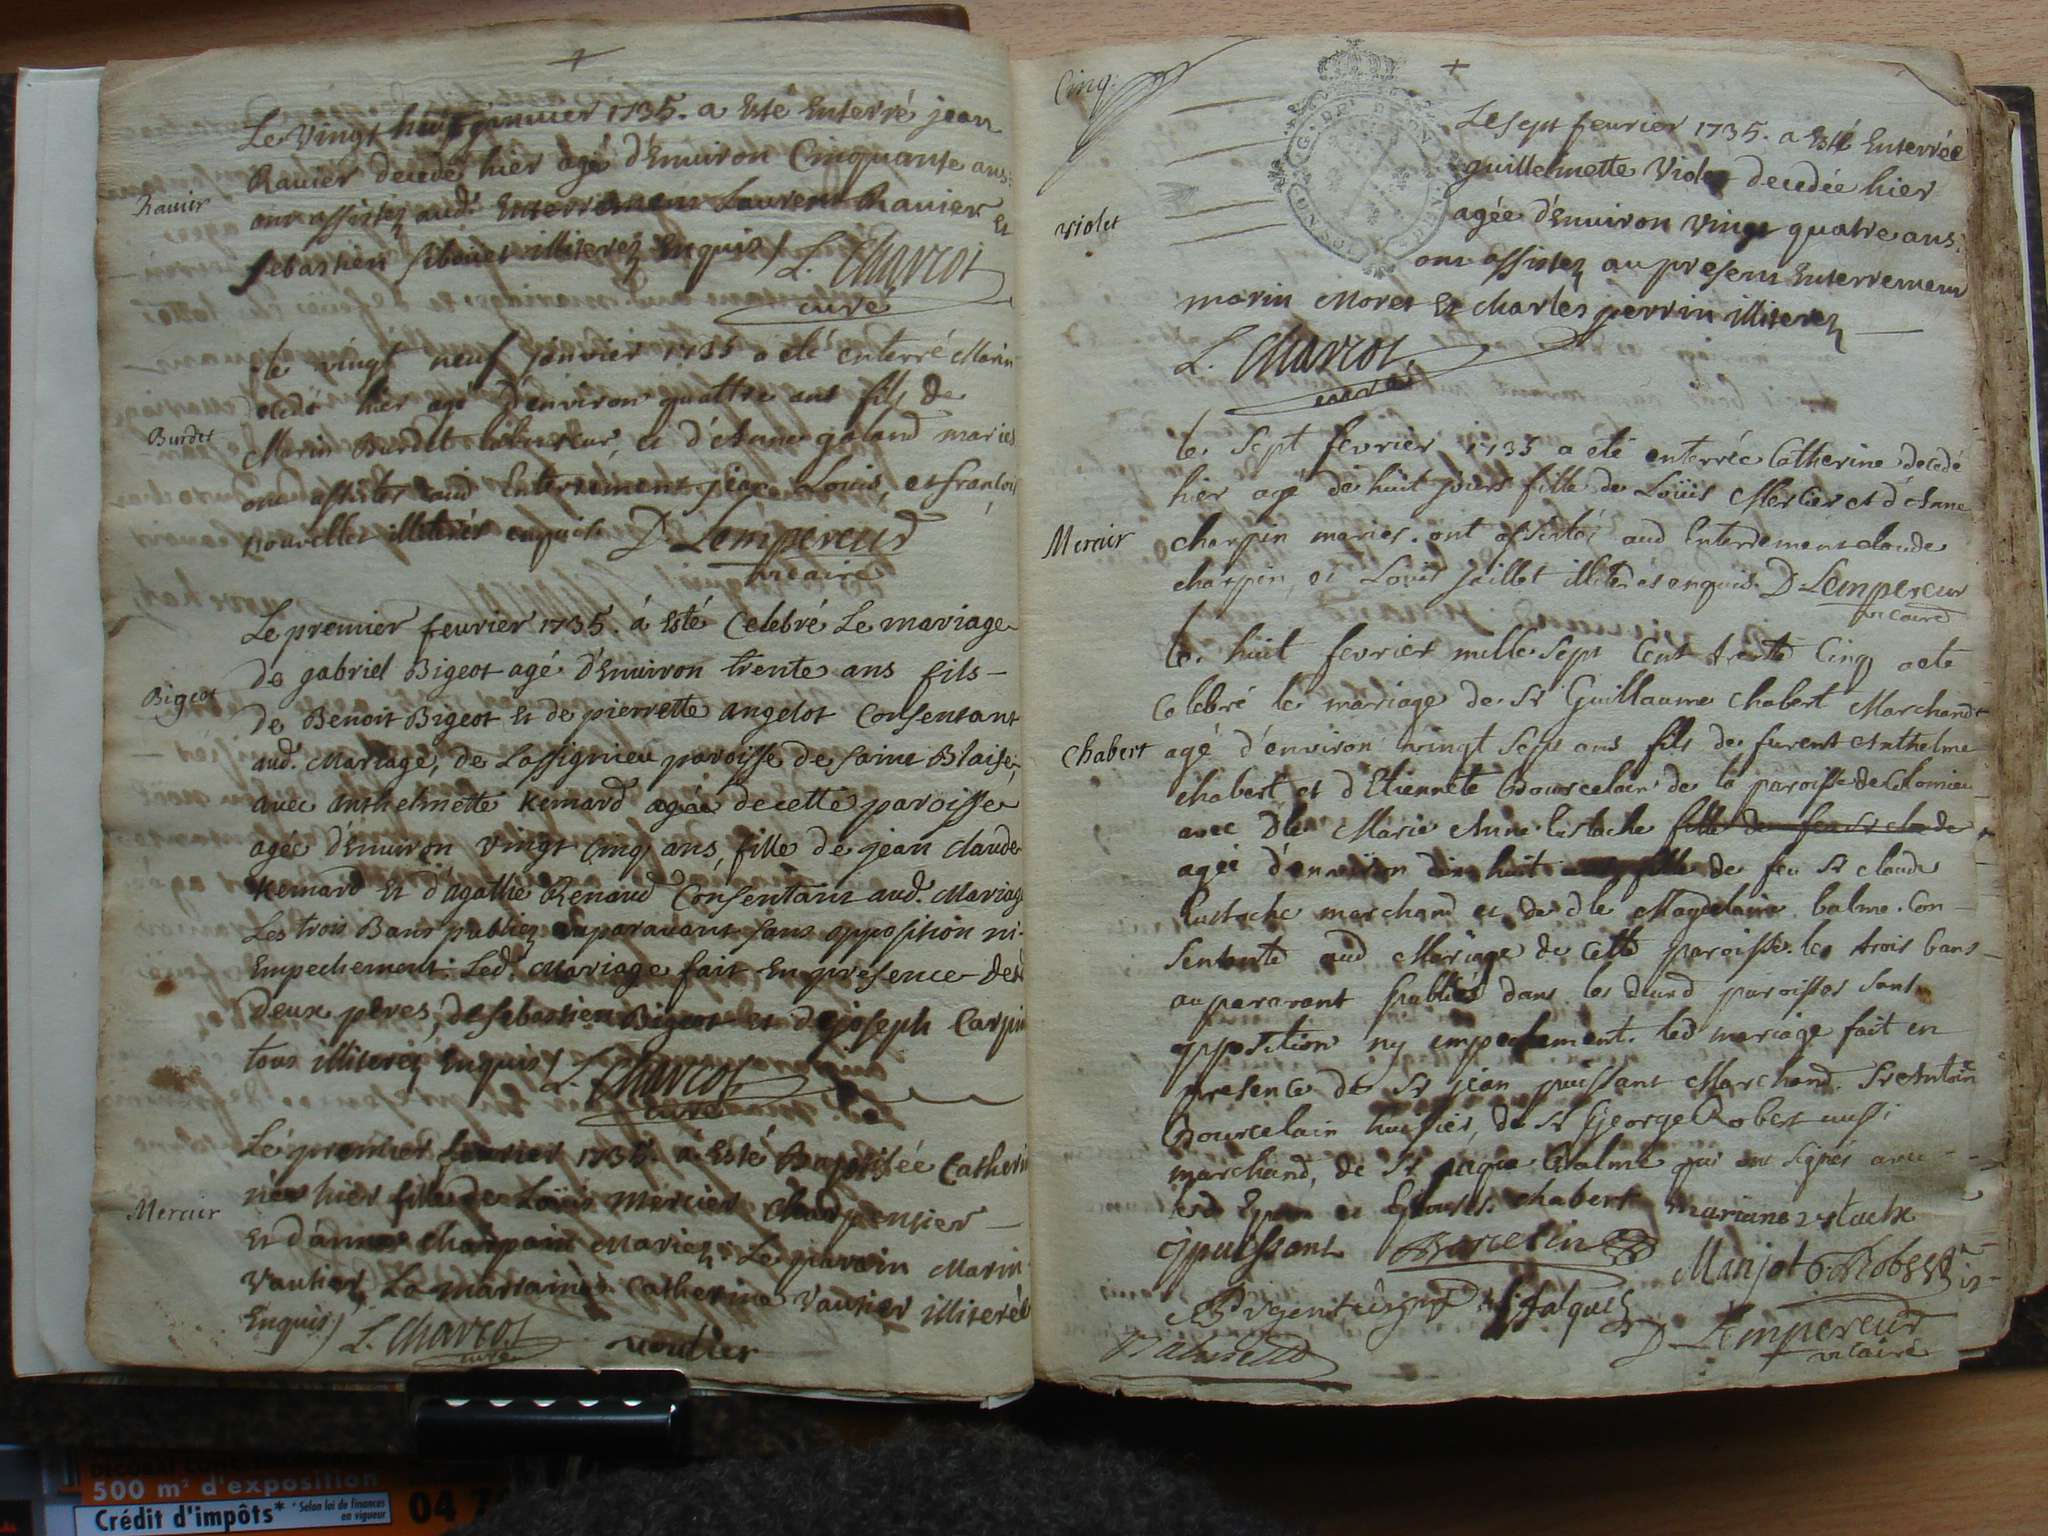 Le Vingt huit janvier 1735. a Esté Enterré jean
Ravier decedé hier agé d'Environ Cinquante ans.
ont assistez aud. Enterrement Laurent Ravier Et
Sebastien Sibouet illiterez Enquis / L. Charcot
curé
Ravier
le vingt neuf janvier 1735 a eté enterré Marin
decedé hier agé d'environ quattre ans fils de
Marin Burdet laboureur, et d'Anne galand maries
ont assister aud Enterrement jean Louis, et françois
nouvellet illiterés enquis. D Lempereur
vicaire
Burdet
Le premier fevrier 1735. á Esté Celebré Le mariage
de gabriel Bigeot agé d'Environ trente ans fils
de Benoit Bigeot Et de pierrette angelot Consentant
aud. Mariage, de Lassignieu paroisse de saint Blaise,
avec anthelmette Kemard agée de cette paroisse
agée d'Environ Vingt Cinq ans, fille de jean claude
Kemard Et d'agathe Renaud Consentant aud. Mariage
Les trois Bans publiez auparavant sans opposition ni
Empechement. Led. Mariage fait En presence des
deux peres, de sebastien Bigeot et de joseph Carpin
tous illiterez Enquis / L. Charcot
curé
Bigeot
Le premier fevrier 1735. á Esté Baptisée Catherine
née hier fille de Loüis mercier
Et d'anne charpain Mariez. Le parain Marin
Vautier, La marraine Catherine Vautier illiterée
Enquis / L. Charcot vautier
curé
Mercier
Cinq.
G. DE DIJON
Le sept fevrier 1735. a Esté Enterrée
guillemette Violet decedée hier
agée d'Environ Vingt quatre ans.
ont assistez au present Enterrement
marin Moret Et charles perrin illiterez
L. Charcot
curé
violet
le sept fevrier 1735 a eté enterrée Catherine decedé
hier agé de huit jours fille de Loüis Mercier et d'Anne
charpin maries. ont assistés aud Enterrement claude
charpin, et Louis jaillet illiterés enquis. D Lempereur
vicaire
Mercier
le huit fevrier mille sept cent trente Cinq a eté
Celebré le mariage de Sr Guillaume Chabert Marchand
agé d'environ vingt sept ans fils de furent Anthelme
chabert et d'Etiennete Bourcelain de la paroisse de Colomieu
avec Dle Marie Anne Eustache fille de feu Sr claude
agée d'environ dix huit ans fille de feu Sr claude
Eustache marchand et de dle Magdelaine balme. Con-
sentente aud Mariage de cette paroisse. les trois bans
auparavant publiés dans les deux paroisses sans
opposition ny empechement. led mariage fait en
presence de Sr jean puissant Marchand. Sr Antoine
Bourcelain huissier, de Sr George Robert aussi
marchand, de Sr balme qui ont signés avec
lesd Epoux et Epouse. chabert mariane eustache
jpuissant Borcelin
Manjot G. Robert
falquet
D Lempereur
vicaire
Chabert
500 m² d'exposition
Crédit d'impôts* * Selon loi de finances
en vigueur
04 7